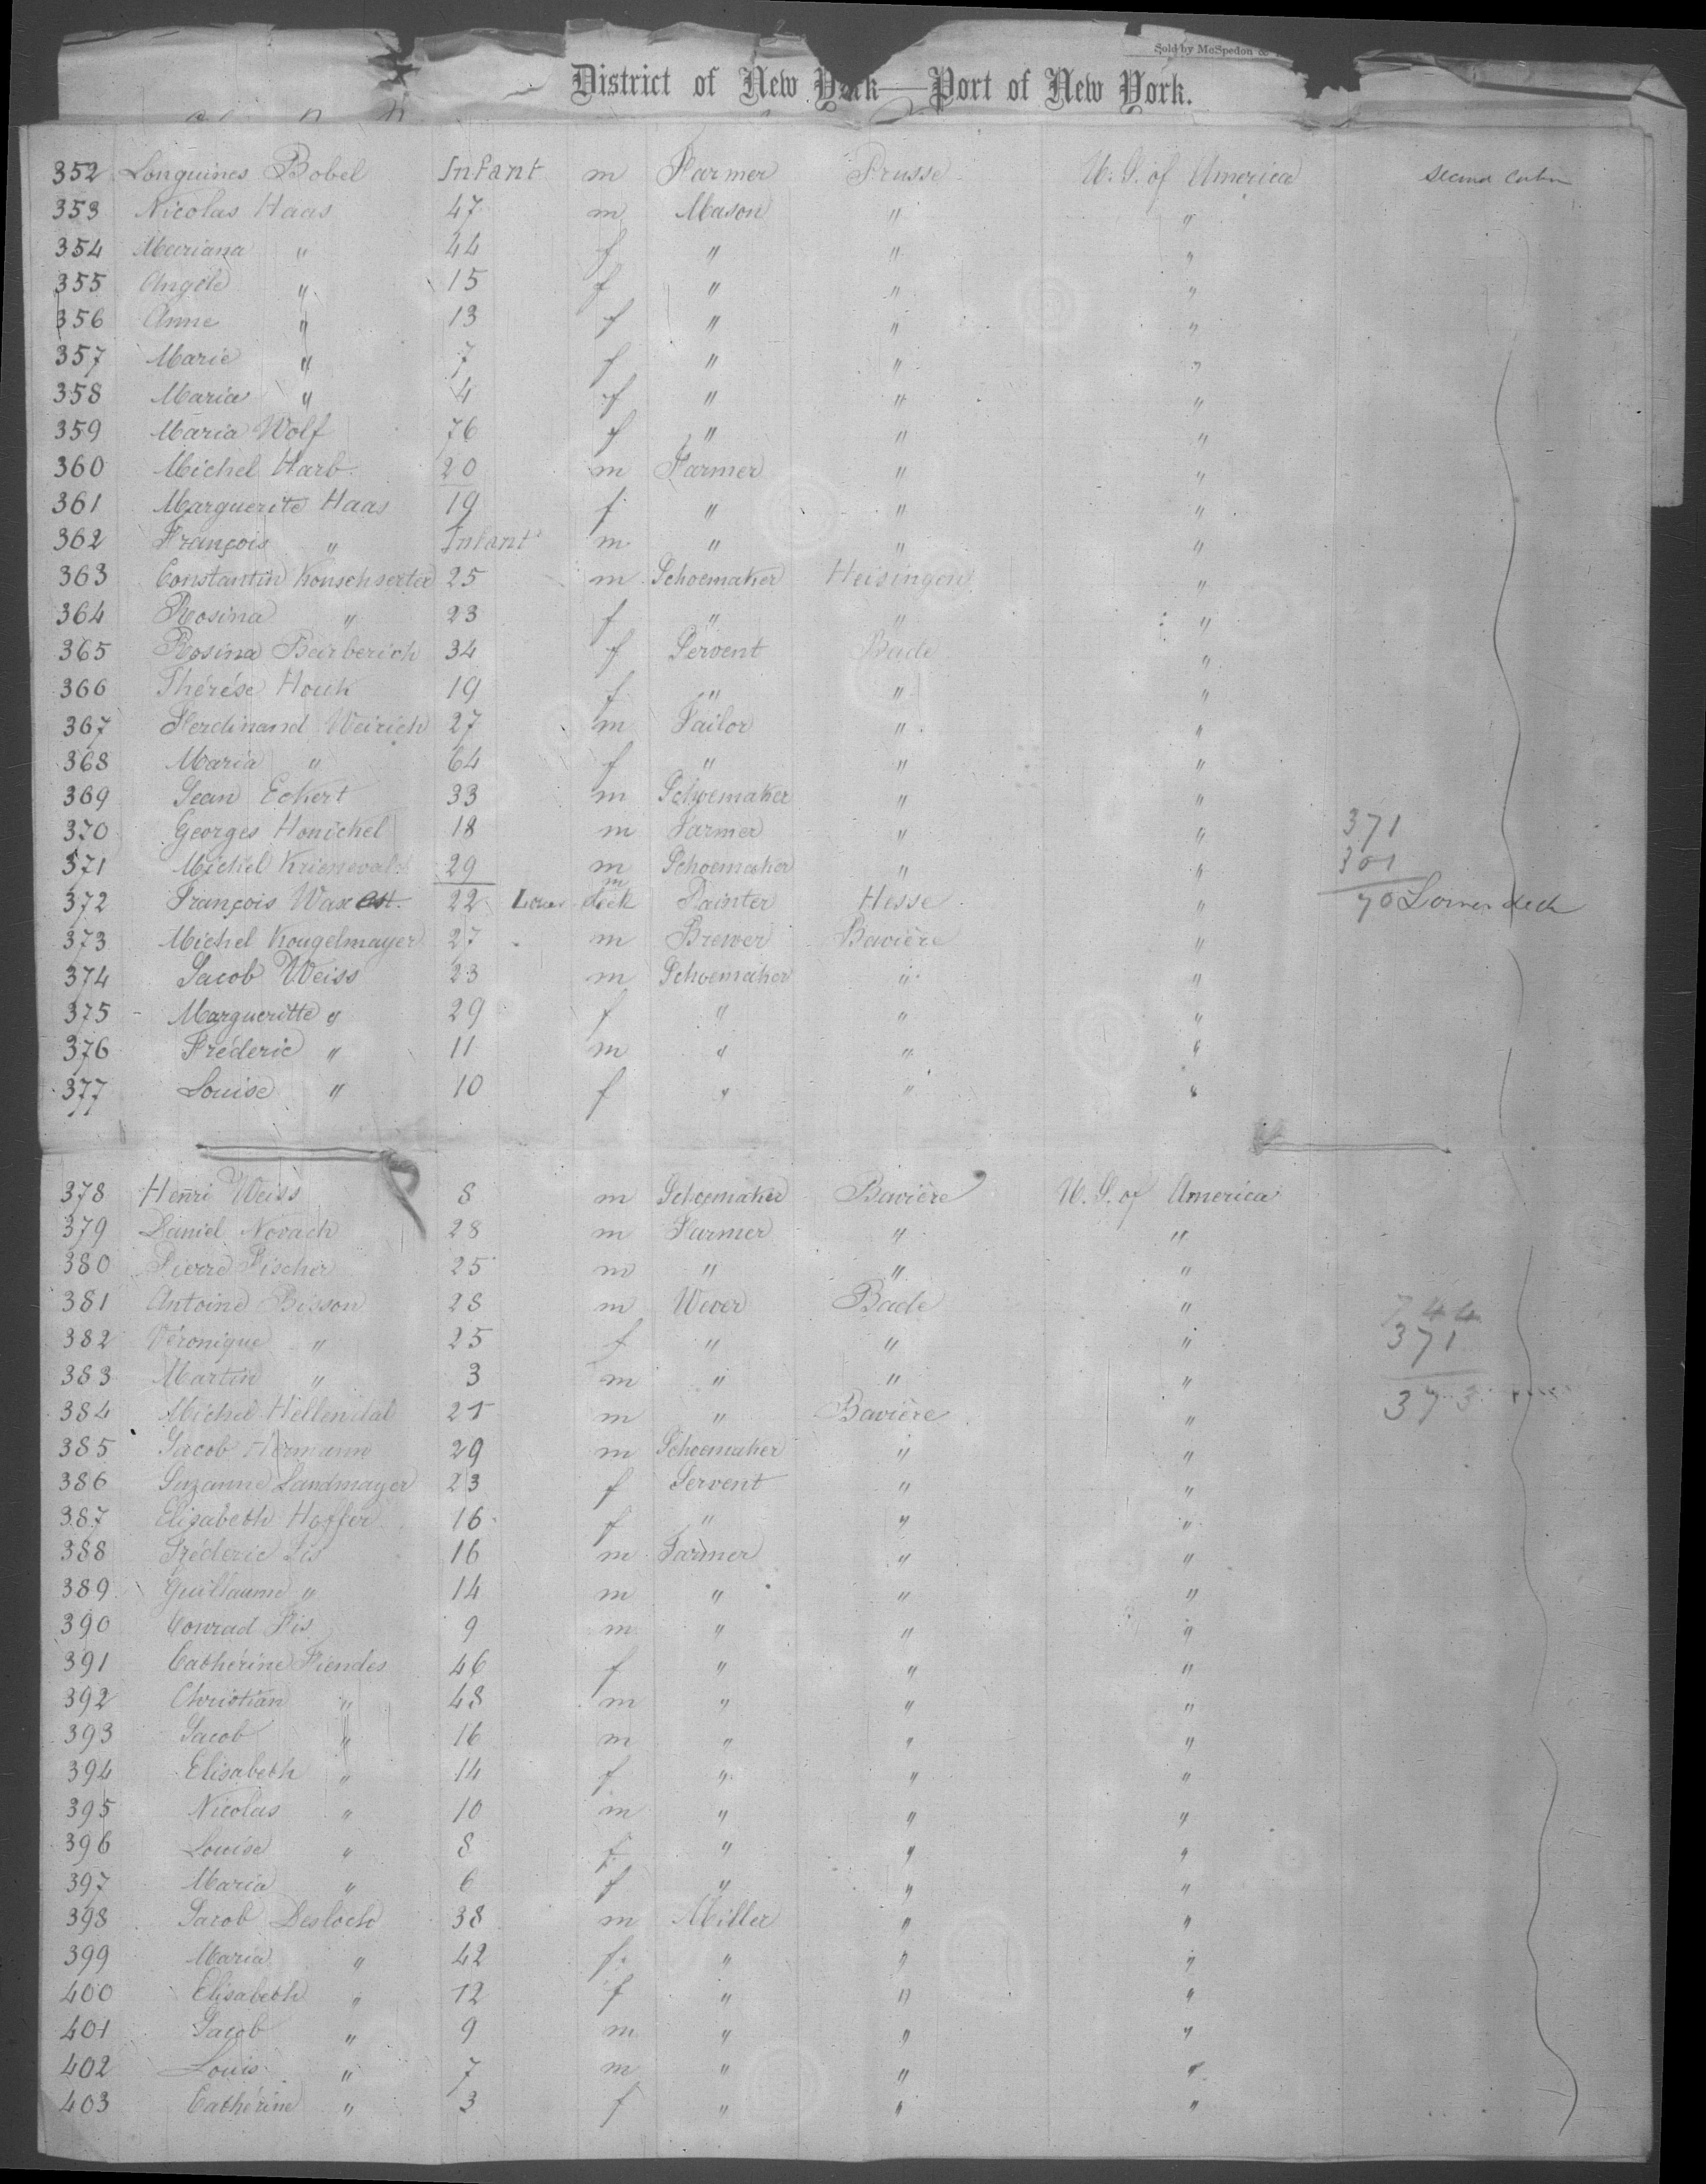 Sold by McSpedon &
District of New York—Port of New York.
352 Longuines Bobel Infant m Farmer Prusse U. S. of America Second Cabin
353 Nicolas Haas 47 m Mason " "
354 Mariana " 44 f " " "
355 Angéle " 15 f " " "
356 Anne " 13 f " " "
357 Marie " 7 f " " "
358 Maria " 4 f " " "
359 Maria Wolf 76 f " " "
360 Michel Harb 20 m Farmer " "
361 Marguerite Haas 19 f " " "
362 François " Infant m " " "
363 Constantin 25 m Schoemaker Heisingen "
364 Rosina " 23 f " " "
365 Rosina Beirberich 34 f Servent Bade "
366 Thérése Houk 19 f " " "
367 Ferdinand Weirich 27 m Tailor " "
368 Maria " 64 f " " "
369 Jean Eckert 33 m Schoemaker " "
370 Georges Honickel 18 m Farmer " " 371
371 Michel 29 m Schoemaker " " 301
372 François 22 Lower deck m Painter Hesse " 70 Lower deck
373 Michel Kougelmayer 27 m Brewer Bavière "
374 Jacob Weiss 23 m Schoemaker " "
375 - Margueritte " 29 f " " "
376 Fréderic " 11 m " " "
377 Louise " 10 f " " "
378 Henri Weiss 8 m Schoemaker Bavière U. S. of America
379 Daniel Novach 28 m Farmer " "
380 Pierre Fischer 25 m " " "
381 Antoine Bisson 28 m Wever Bade " 744
382 Véronique " 25 f " " " 371
383 Martin " 3 m " " " 373
384 Michel Hellendal 21 m " Bavière "
385 Jacob Hermann 29 m Schoemaker " "
386 Suzanne Landmayer 23 f Servent " "
387 Elisabeth Hoffer 16 f " " "
388 Fréderic Fis 16 m Farmer " "
389 Guillaume " 14 m " " "
390 Conrad Fis 9 m " " "
391 Cathérine Fiendes 46 f " " "
392 Christian " 48 m " " "
393 Jacob " 16 m " " "
394 Elisabeth " 14 f " " "
395 Nicolas " 10 m " " "
396 Louise " 8 f " " "
397 Maria " 6 f " " "
398 Jacob Desloch 38 m Miller " "
399 Maria " 42 f " " "
400 Elisabeth " 12 f " " "
401 Jacob " 9 m " " "
402 Louis " 7 m " " "
403 Cathérine " 3 f " " "